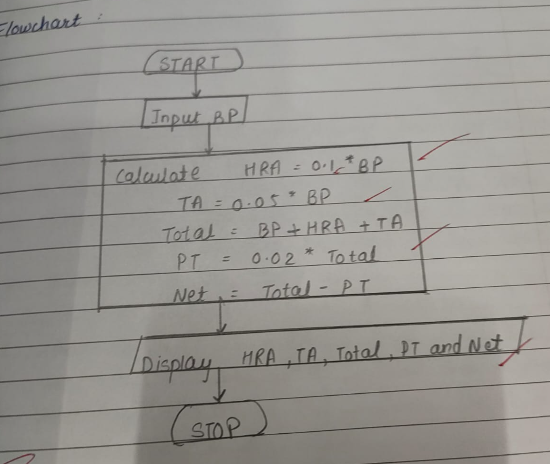 Flowchart :
START
Input BP
Calculate HRA = 0.1 * BP
TA = 0.05 * BP
Total = BP + HRA + TA
PT = 0.02 * Total
Net = Total - PT
Display HRA, TA, Total, PT and Net
STOP